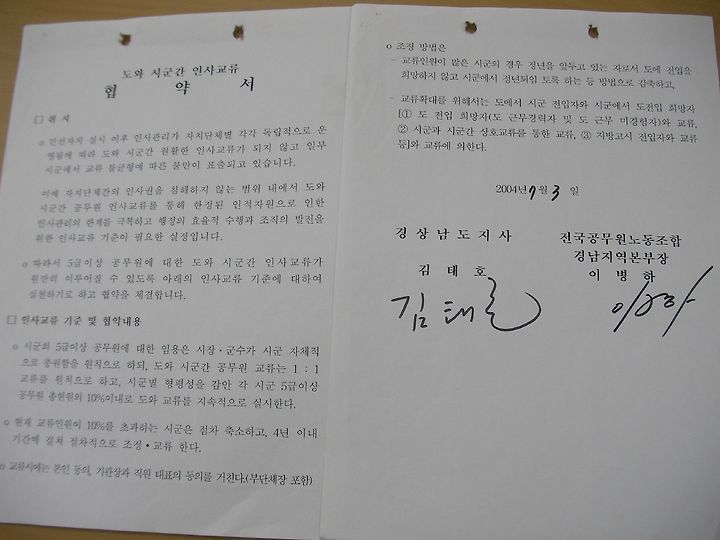 도와 시군간 인사교류
협 약 서
□ 취 지
o 민선자치 실시 이후 인사관리가 자치단체별 각각 독립적으로 운
영됨에 따라 도와 시군간 원활한 인사교류가 되지 않고 일부
시군에서 교류 불균형에 따른 불만이 표출되고 있습니다.
이에 자치단체간의 인사권을 침해하지 않는 범위 내에서 도와
시군간 공무원 인사교류를 통해 한정된 인적자원으로 인한
인사관리의 한계를 극복하고 행정의 효율적 수행과 조직의 발전을
위한 인사교류 기준이 필요한 실정입니다.
o 따라서 5급이상 공무원에 대한 도와 시군간 인사교류가
원만히 이루어질 수 있도록 아래의 인사교류 기준에 대하여
실천하기로 하고 협약을 체결합니다.
□ 인사교류 기준 및 협약내용
o 시군의 5급이상 공무원에 대한 임용은 시장·군수가 시군 자체적
으로 충원함을 원칙으로 하되, 도와 시군간 공무원 교류는 1 : 1
교류를 원칙으로 하고, 시군별 형평성을 감안 각 시군 5급이상
공무원 총현원의 10%이내로 도와 교류를 지속적으로 실시한다.
o 현재 교류인원이 10%를 초과하는 시군은 점차 축소하고, 4년 이내
기간에 걸쳐 점차적으로 조정·교류 한다.
o 교류시에는 본인 동의, 기관장과 직원 대표의 동의를 거친다.(부단체장 포함)
o 조정 방법은
- 교류인원이 많은 시군의 경우 정년을 앞두고 있는 자로서 도에 전입을
희망하지 않고 시군에서 정년퇴임 토록 하는 등 방법으로 감축하고,
- 교류확대를 위해서는 도에서 시군 전입자와 시군에서 도전입 희망자
[① 도 전입 희망자(도 근무경력자 및 도 근무 미경험자)와 교류,
② 시군과 시군간 상호교류를 통한 교류, ③ 지방고시 전입자와 교류
등]와 교류에 의한다.
2004년 7월 3 일
경상남도지사 전국공무원노동조합
경남지역본부장
김 태 호 이 병 하
김태호